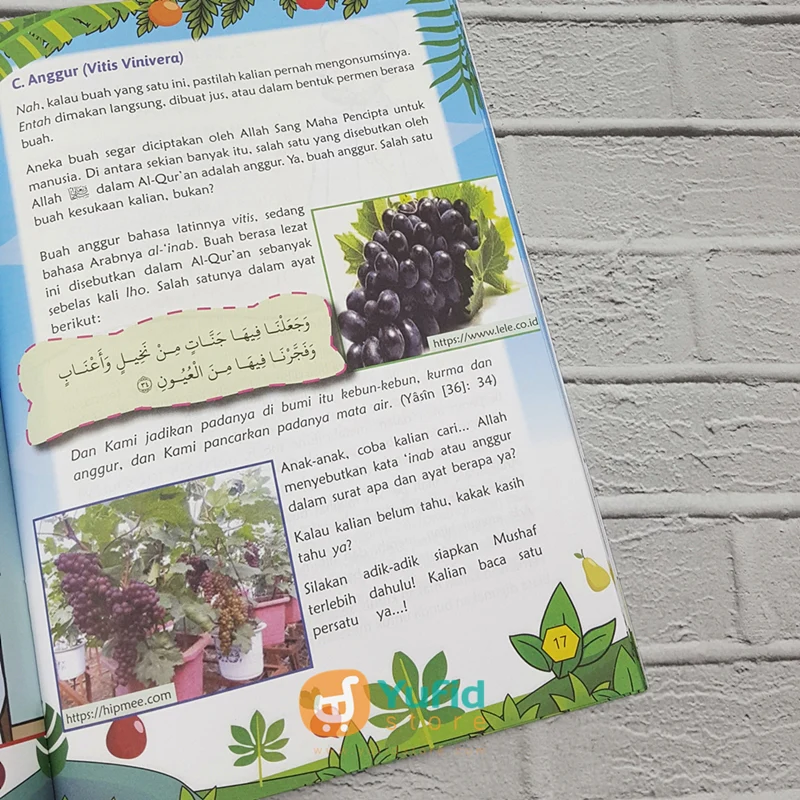 C. Anggur (Vitis Vinivera)
Nah, kalau buah yang satu ini, pastilah kalian pernah mengonsumsinya.
Entah dimakan langsung, dibuat jus, atau dalam bentuk permen berasa
buah.
Aneka buah segar diciptakan oleh Allah Sang Maha Pencipta untuk
manusia. Di antara sekian banyak itu, salah satu yang disebutkan oleh
Allah ﷻ dalam Al-Qur'an adalah anggur. Ya, buah anggur. Salah satu
buah kesukaan kalian, bukan?
Buah anggur bahasa latinnya vitis, sedang
bahasa Arabnya al-'inab. Buah berasa lezat
ini disebutkan dalam Al-Qur'an sebanyak
sebelas kali lho. Salah satunya dalam ayat
berikut:
https://www.lele.co.id
وَجَعَلْنَا فِيهَا جَنَّاتٍ مِنْ نَخِيلٍ وَأَعْنَابٍ
وَفَجَّرْنَا فِيهَا مِنَ الْعُيُونِ ﴿٣٤﴾
Dan Kami jadikan padanya di bumi itu kebun-kebun, kurma dan
anggur, dan Kami pancarkan padanya mata air. (Yâsîn [36]: 34)
Anak-anak, coba kalian cari... Allah
menyebutkan kata 'inab atau anggur
dalam surat apa dan ayat berapa ya?
Kalau kalian belum tahu, kakak kasih
tahu ya?
Silakan adik-adik siapkan Mushaf
terlebih dahulu! Kalian baca satu
persatu ya...!
https://hipmee.com
17
Yufid
store